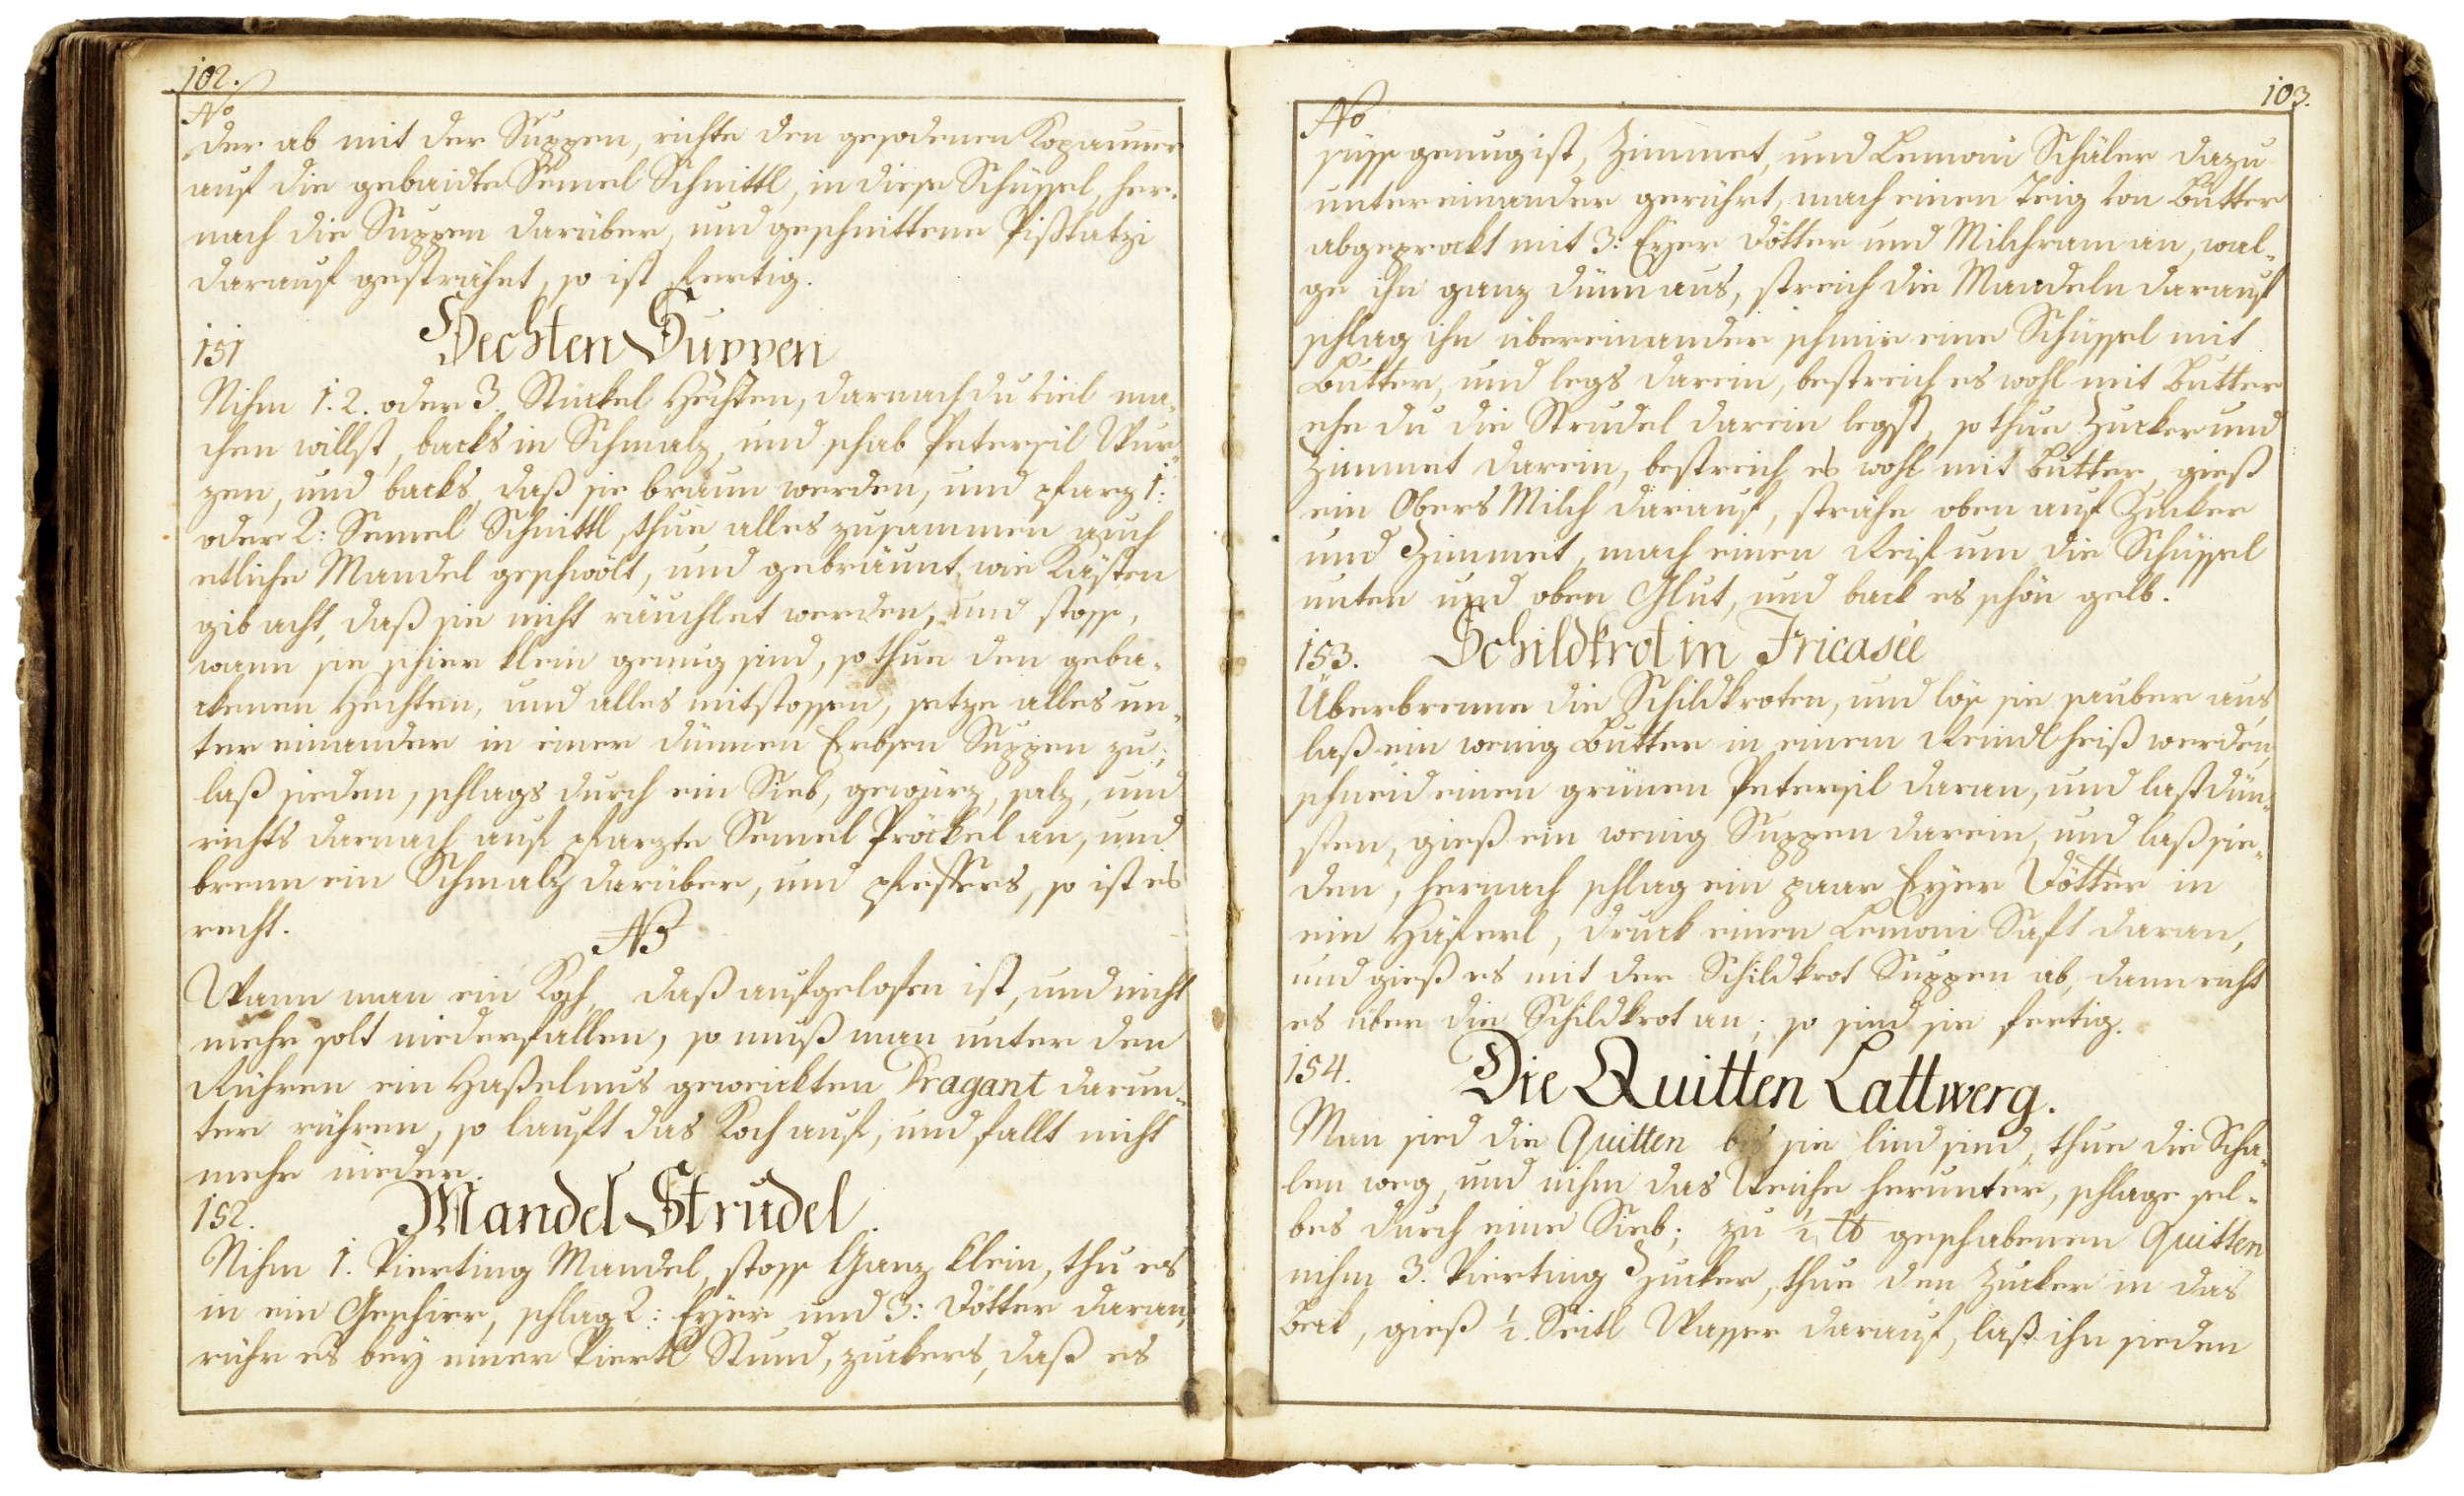 102.
No
der ab mit der Suppen, richte den gesodenen Kopauner
auf die gebaidte Semel Schnittl, in diese Schüssel, her-
nach die Suppen darüber, und geschnittene Pistatzi
darauf gesträhet, so ist fertig.
151 Hechten Suppen
Nihm 1. 2. oder 3. Stückel Hechten, darnach du viel ma-
chen willst, backs in Schmalz, und schab Petersil Wur-
zen, und backs, daß sie braun werden, und pfarz 1:
oder 2: Semel Schnittl, thue alles zusammen auch
etliche Mandel geschwölt, und gebräunt, wie Kästen
gib acht, daß sie nicht räuchlet werden, und stosse,
wann sie schier klein genug sind, so thue den geba-
ckenen Hechten, und alles mitstossen, setze alles un-
ter einander in einer dünnen Erbsen Suppen zu;
laß sieden, schlags durch ein Sieb, gewürz, salz, und
richts darnach auf pfarzte Semel Pröckel an, und
brenn ein Schmalz darüber, und pfeffers, so ist es
recht.
NB
Wann man ein Koch, daß aufgelofen ist, und nicht
mehr solt niederfallen, so muß man unter den
Rühren ein Haßelnus geweickten Dragant darun-
ter rühren, so lauft das Koch auf, und fallt nicht
mehr nieder.
152. Mandel Strudel.
Nihm 1. Vierting Mandel, stosse Ganz klein, thu es
in ein Geschier, schlag 2: Eyer und 3: Dötter daran,
rühr es bey einer Viertl Stund, zuckers, daß es
103.
No
süsse genug ist, Zimmet, und Lemoni Schäler dazu
untereinander gerührt, mach einen Teig von Butter
abgeprockt mit 3: Eyer Dötter und Milchram an, wal-
ge ihn ganz dünn aus, streich die Mandeln darauf
schlag ihn übereinander schmir eine Schüssel mit
Butter, und legs darein, bestreich es wohl mit Butter
ehe du die Strudel darein legst, so thue Zucker und
Zimmet darein, bestreich es wohl mit Butter, gieß
ein Obers Milch darauf, strähe oben auf Zucker
und Zimmet, mach einen Reif um die Schüssel
unten und oben Glut, und back es schön gelb.
153. Schildkrot in Fricasée
Überbrenne die Schildkroten, und lös sie sauber aus,
laß ein wenig Butter in einem Reindl heiß werden,
schneid einen grünen Petersil daran, und last dün-
sten, gieß ein wenig Suppen darein, und laß sie-
den, hernach schlag ein paar Eyer Dötter in
ein Häferl, druck einen Lemoni Saft daran,
und gieß es mit der Schildkrot Suppen ab, dann richt
es über die Schildkrot an; so sind sie fertig.
154. Die Quitten Lattwerg.
Man sied die Quitten bis sie lind sind, thue die Scha-
len weg, und nihm das Weiche herunter, schlage sel-
bes durch eine Sieb; zu ½ ℔ geschabenen Quitten
nihm 3. Vierting Zucker, thue den Zucker in das
Beck, gieß ½. Seitl Wasser darauf, laß ihn sieden